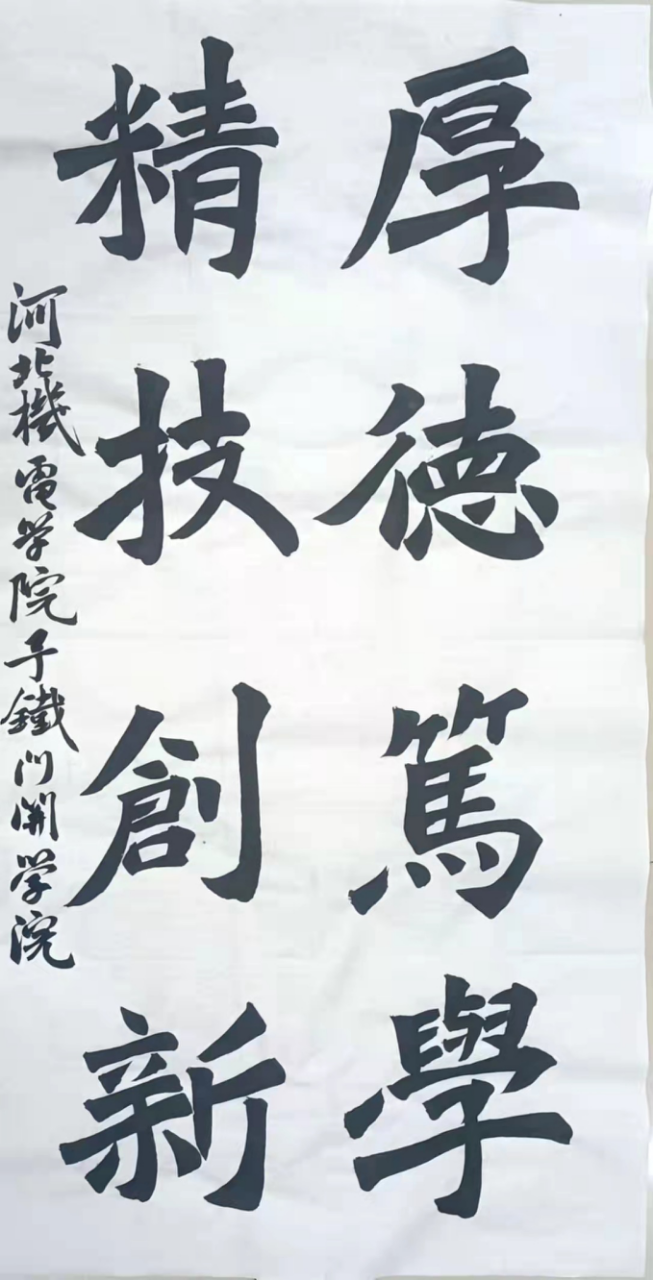 厚德篤學
精技創新
河北機電学院子鐵门開学院